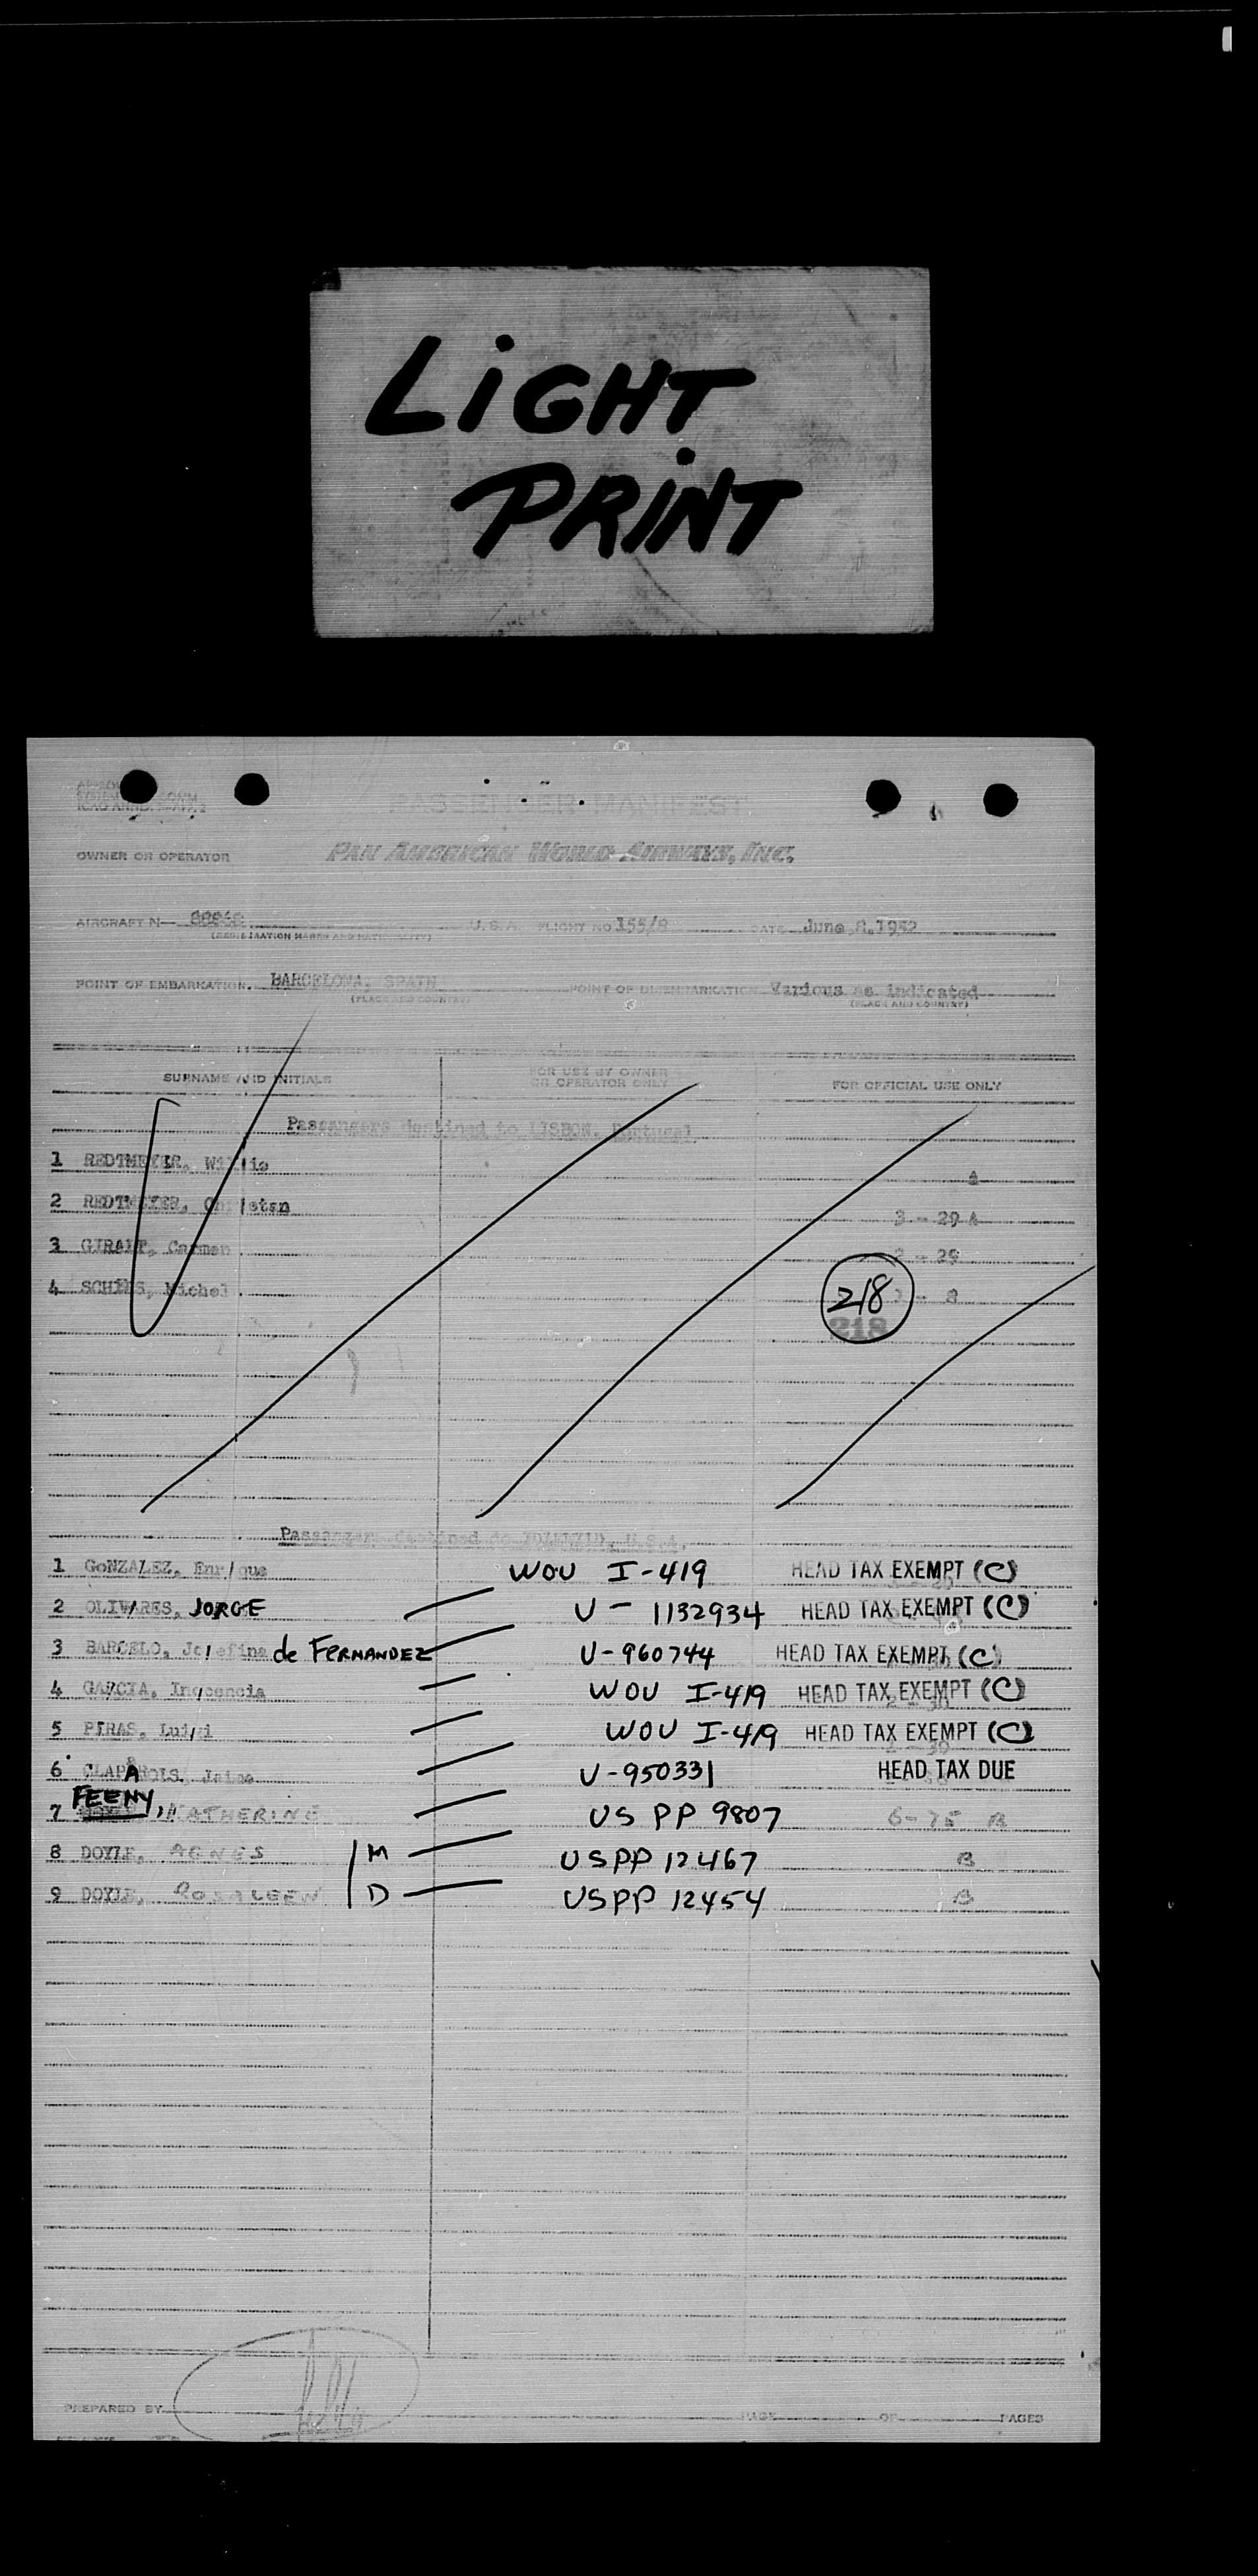 LiGHT
PRiNT
PASSENGER MANIFEST
OWNER OR OPERATOR PAN AMERICAN WORLD AIRWAYS, INC.
AIRCRAFT N— U.S.A. FLIGHT NO 155/8 DATE June 8, 1952
(REGISTRATION MARKS AND NATIONALITY)
POINT OF EMBARKATION BARCELONA, SPAIN POINT OF DISEMBARKATION Various as indicated
(PLACE AND COUNTRY) (PLACE AND COUNTRY)
SURNAME AND INITIALS FOR USE BY OWNER OR OPERATOR ONLY FOR OFFICIAL USE ONLY
Passengers destined to LISBON, Portugal
1 REDTMEYER, A
2 REDTMEYER, 3 - 29 A
3 GIRALT, Carmen 2 - 29
4 Michel 8
218
218
Passengers destined to U.S.A.
1 GONZALEZ, Enrique WOU I-419 HEAD TAX EXEMPT (C)
2 OLIVARES, JORGE U - 1132934 HEAD TAX EXEMPT (C)
3 BARCELO, Josefina de FERNANDEZ U-960744 HEAD TAX EXEMPT (C)
4 GARCIA, Inocencia WOU I-419 HEAD TAX EXEMPT (C)
5 PIRAS, Luigi WOU I-419 HEAD TAX EXEMPT (C)
6 CLAPAROLS, Jaime U-950331 HEAD TAX DUE
7 FEENY, KATHERINE US PP 9807 6-75 B
8 DOYLE, AGNES M USPP 12467 B
9 DOYLE, ROSALEEN D USPP 12454 B
PREPARED BY PAGE OF PAGES